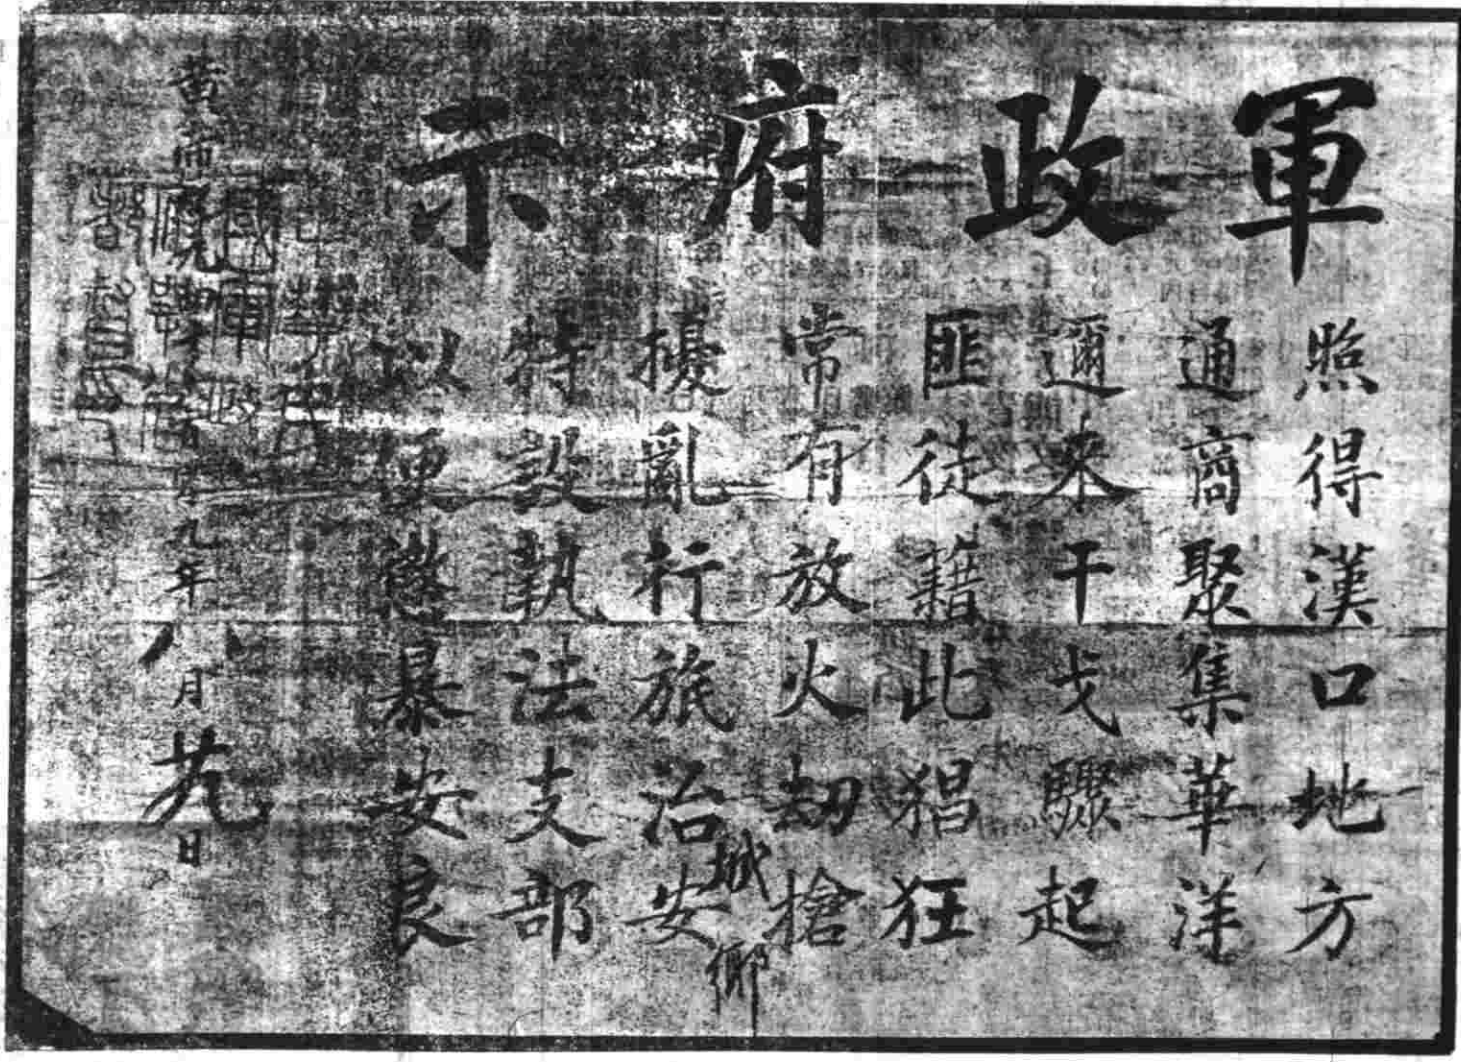 軍政府示
照得漢口地方
通商聚集華洋
邇來干戈驟起
匪徒藉此猖狂
常有放火劫搶
擾亂行旅治安
城鄉
特設執法支部
以便懲暴安良
黃帝九年八月廿九日